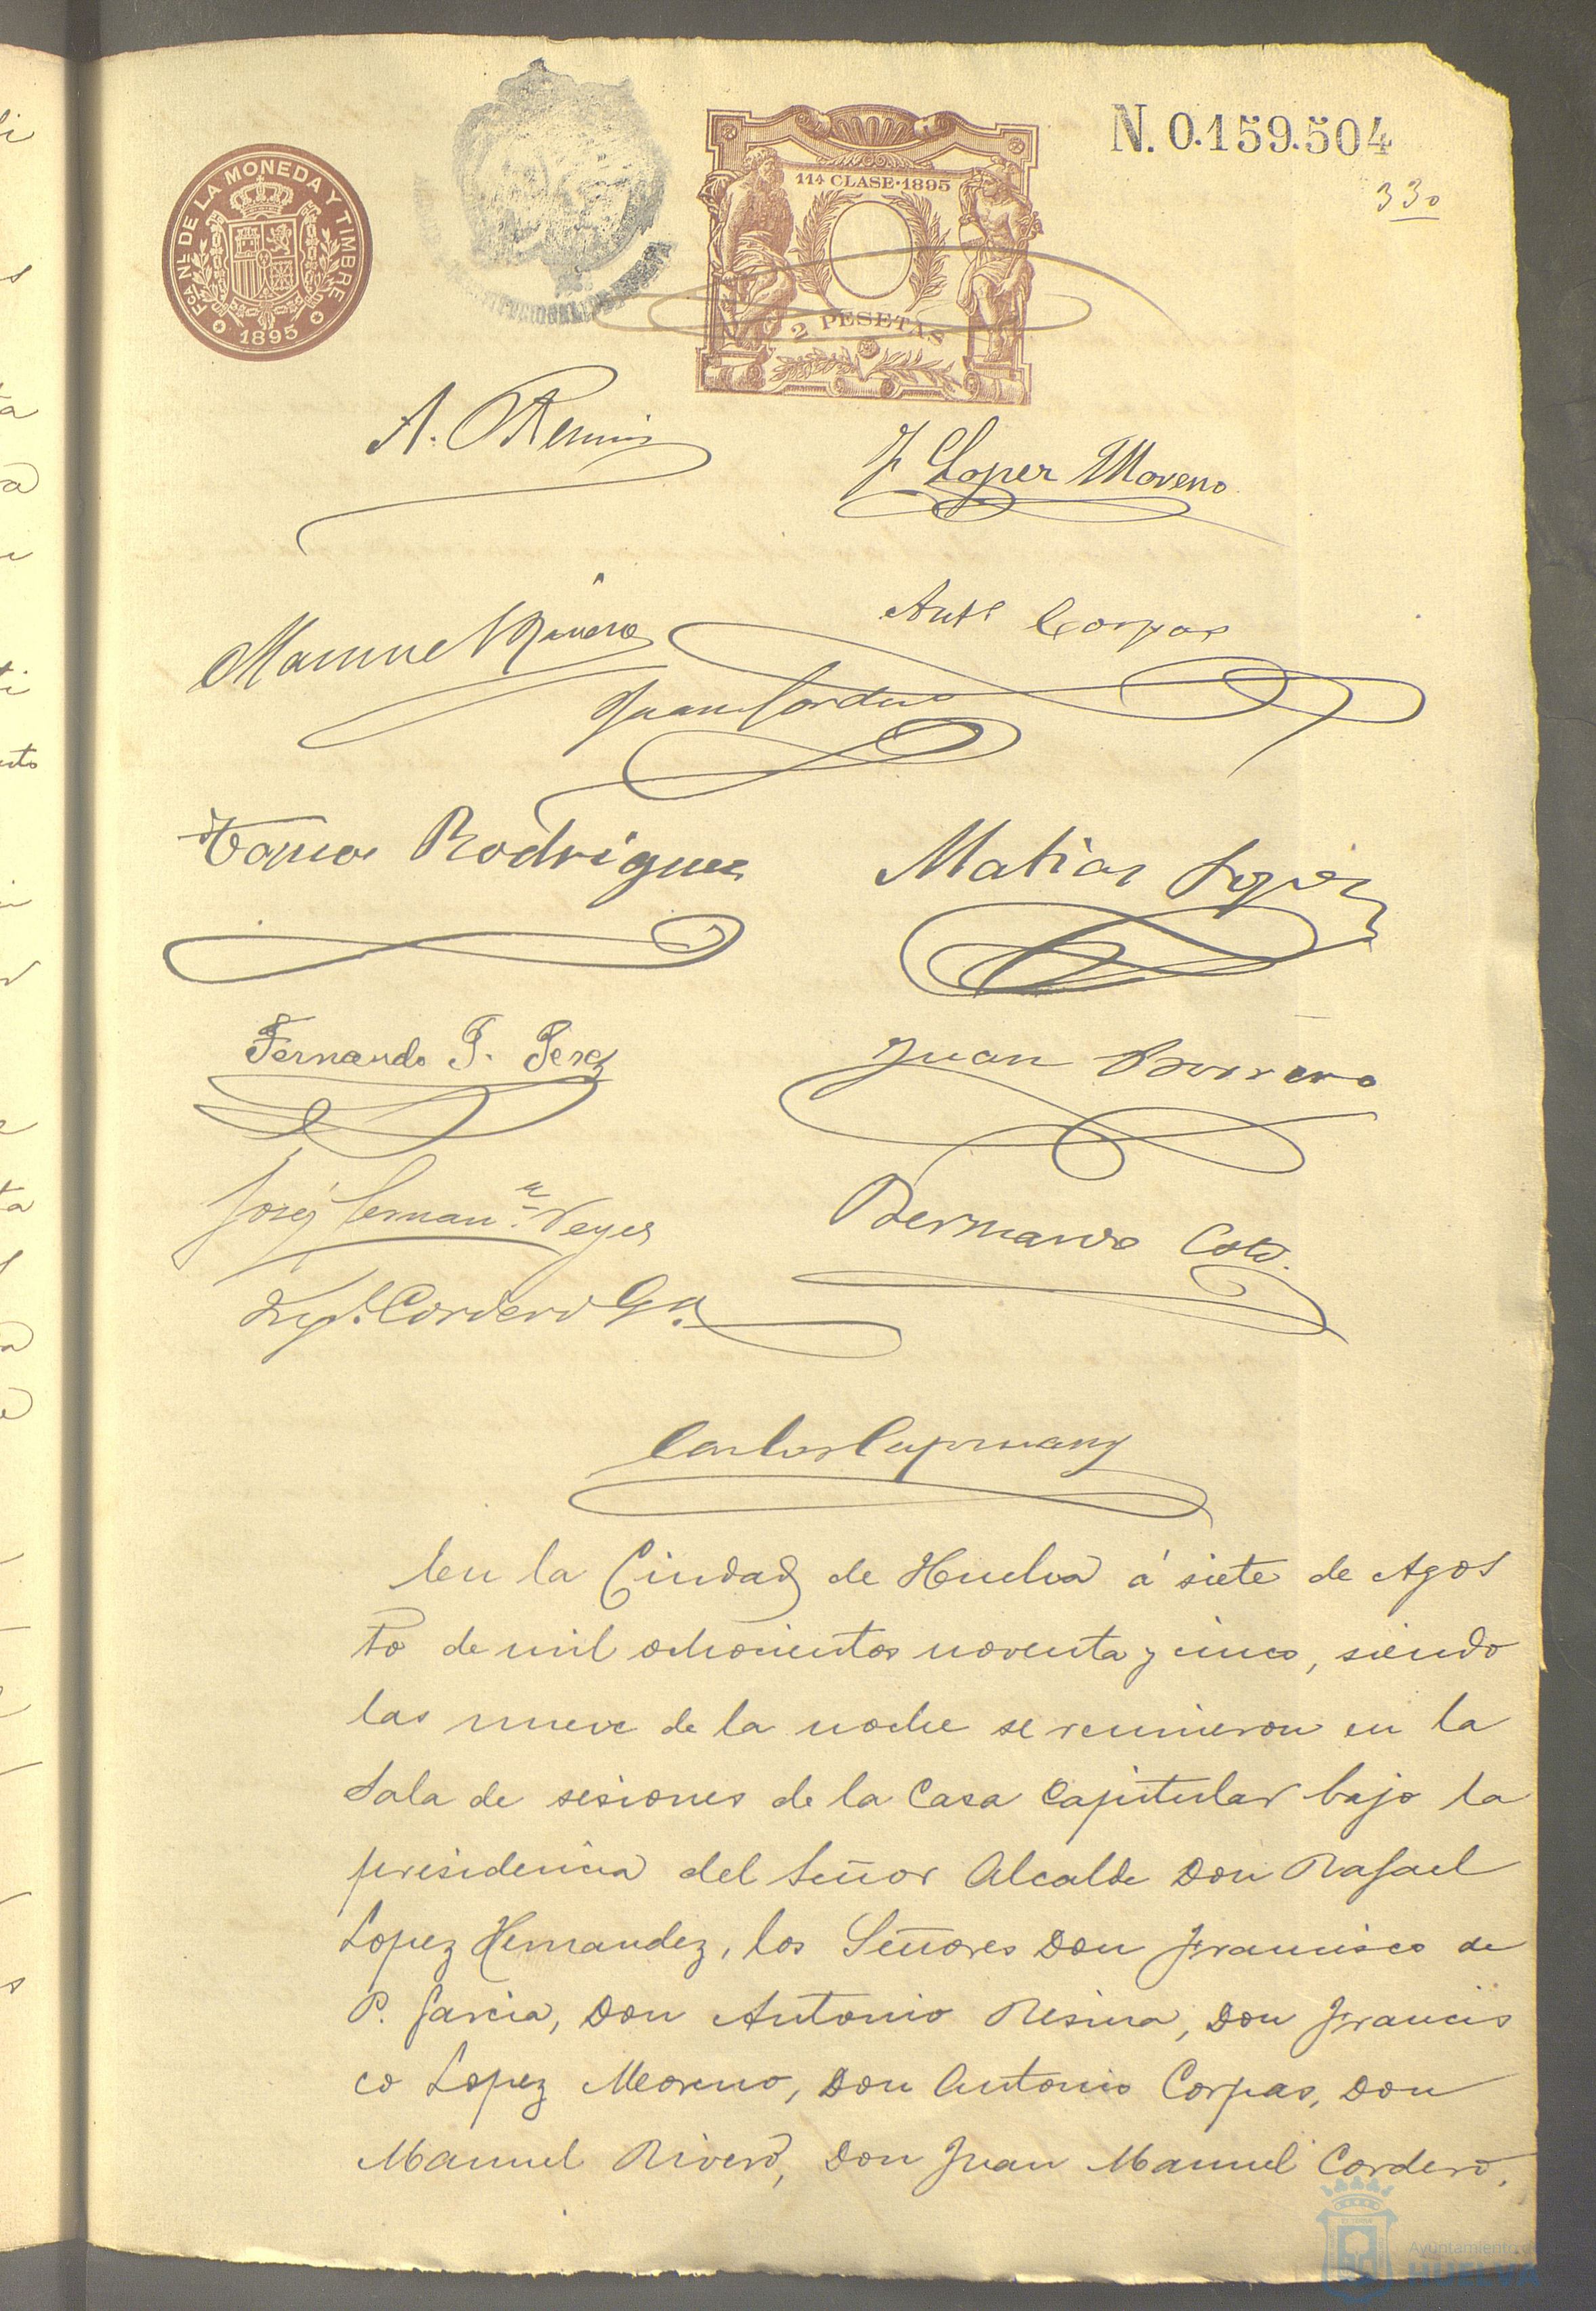 N. 0.159.504
330
FCA. NL. DE LA MONEDA Y TIMBRE
1895
11ª CLASE·1895
2 PESETAS
A. Resina
F Lopez Moreno
Manuel Rivero
Antº Corpas
Juan Cordero
Tomas Rodriguez
Matias Lopez
Fernando P. Perez
Juan Borrero
José
Bernardo Coto.
Cordero Gª.
Carlos
En la Ciudad de Huelva á siete de Agos
to de mil ochocientos noventa y cinco, siendo
las nueve de la noche se reunieron en la
Sala de sesiones de la Casa Capitular bajo la
presidencia del Señor Alcalde Don Rafael
Lopez Hernandez, los Señores Don Francisco de
P. Garcia, Don Antonio Resina, Don Francis
co Lopez Moreno, Don Antonio Corpas, Don
Manuel Rivero, Don Juan Manuel Cordero,
Ayuntamiento de
HUELVA